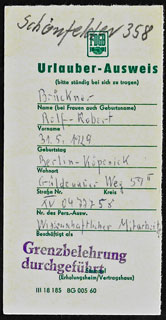 Schönfelder 358
FDGB
Urlauber-Ausweis
(bitte ständig bei sich zu tragen)
Brückner
Name (bei Frauen auch Geburtsname)
Rolf-Robert
Vorname
31. 5. 1929
Geburtstag
Berlin-Köpenick
Wohnort
Weg
Straße Nr. Kreis
XV 0477758
Nr. des Pers.-Ausw.
Wissenschaftlicher Mitarbeiter
Beschäftigt als
Grenzbelehrung
durchgeführt
(Erholungsheim/Vertragshaus)
III 18 185 BG 005 60